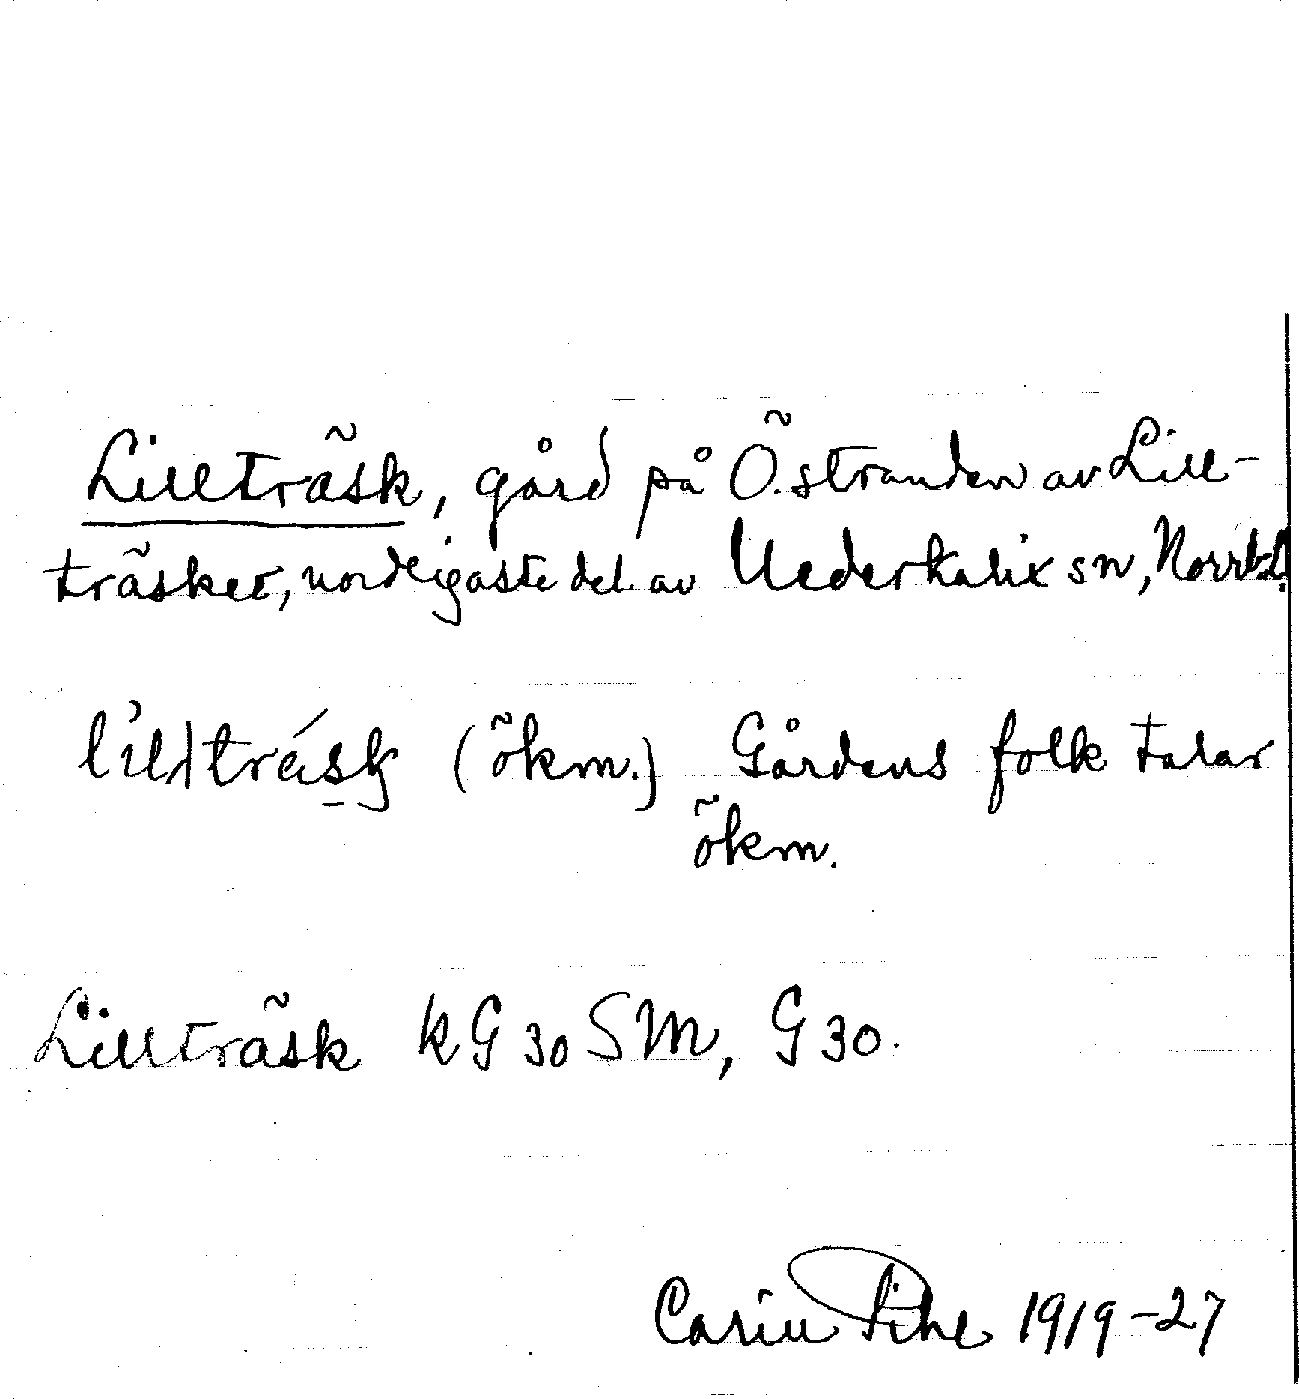 Lillträsk, gård på Ö. stranden av Lill-
träsket, nordligaste del av Nederkalix sn, Norrb. L.
(ökm.) Gårdens folk talar
ökm.
Lillträsk k G 30 SM, G 30.
Carin Pihl 1919-27